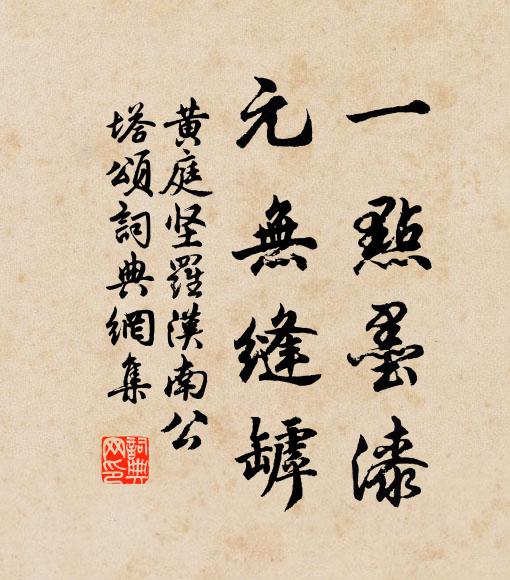 一點墨漆
元無縫罅
黃庭坚羅漢南公
塔頌詞典網集
詞典网印